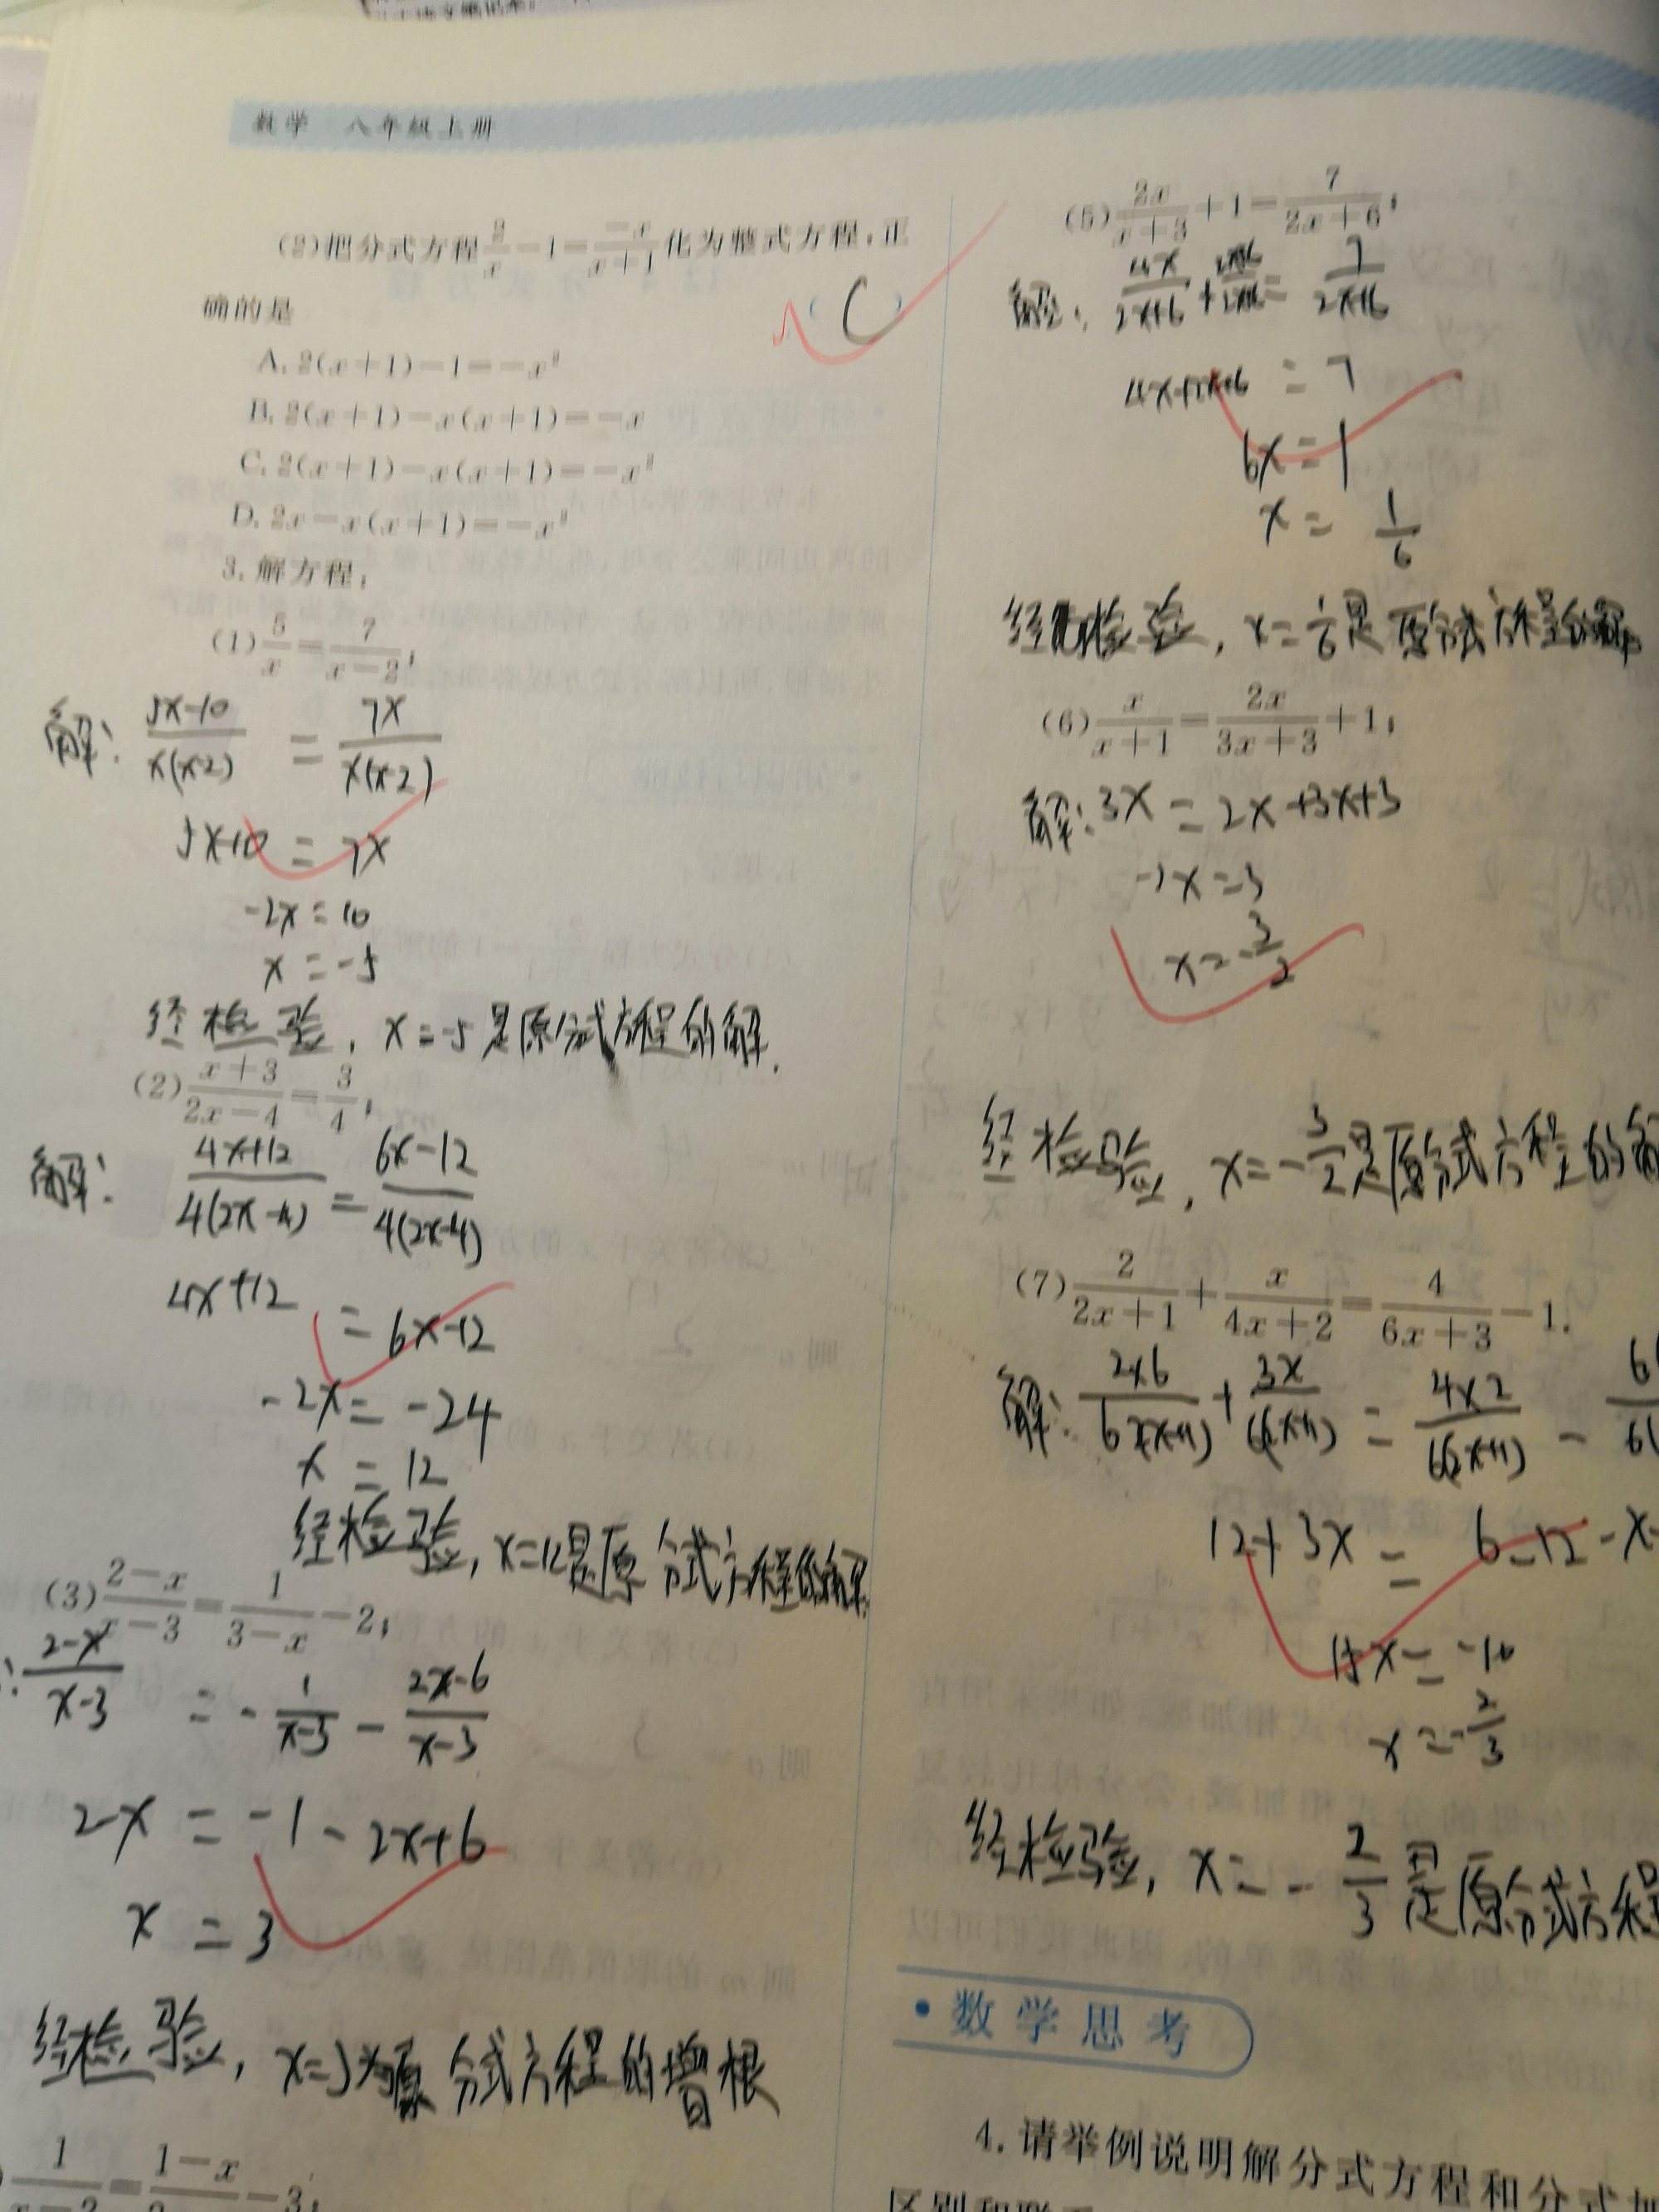 数学 八年级上册
(2)把分式方程2/x-1=-x/(x+1)化为整式方程,正
确的是 ( C )
A. 2(x+1)-1=-x²
B. 2(x+1)-x(x+1)=-x
C. 2(x+1)-x(x+1)=-x²
D. 2x-x(x+1)=-x²
3. 解方程:
(1) 5/x=7/(x-2);
解: (5x-10)/(x(x-2)) = 7x/(x(x-2))
5x-10 = 7x
-2x = 10
x = -5
经检验, x=-5是原分式方程的解.
(2) (x+3)/(2x-4)=3/4;
解: (4x+12)/(4(2x-4)) = (6x-12)/(4(2x-4))
4x+12 = 6x-12
-2x = -24
x = 12
经检验, x=12是原分式方程的解.
(3) (2-x)/(x-3)=1/(3-x)-2;
: (2-x)/(x-3) = -1/(x-3) - (2x-6)/(x-3)
2-x = -1-2x+6
x = 3
经检验, x=3为原分式方程的增根
=(1-x)/ -3;
(5) 2x/(x+3)+1=7/(2x+6);
解: 4x/(2x+6) + (2x+6)/(2x+6) = 7/(2x+6)
4x+2x+6 = 7
6x = 1
x = 1/6
经检验, x=1/6是原分式方程的解.
(6) x/(x+1)=2x/(3x+3)+1;
解: 3x = 2x+3x+3
-2x=3
x=-3/2
经检验, x=-3/2是原分式方程的
(7) 2/(2x+1)+x/(4x+2)=4/(6x+3)-1.
解:
12+3x =
x=-2/3
经检验, x=-2/3是原分式方程
·数学思考
4. 请举例说明解分式方程和分式